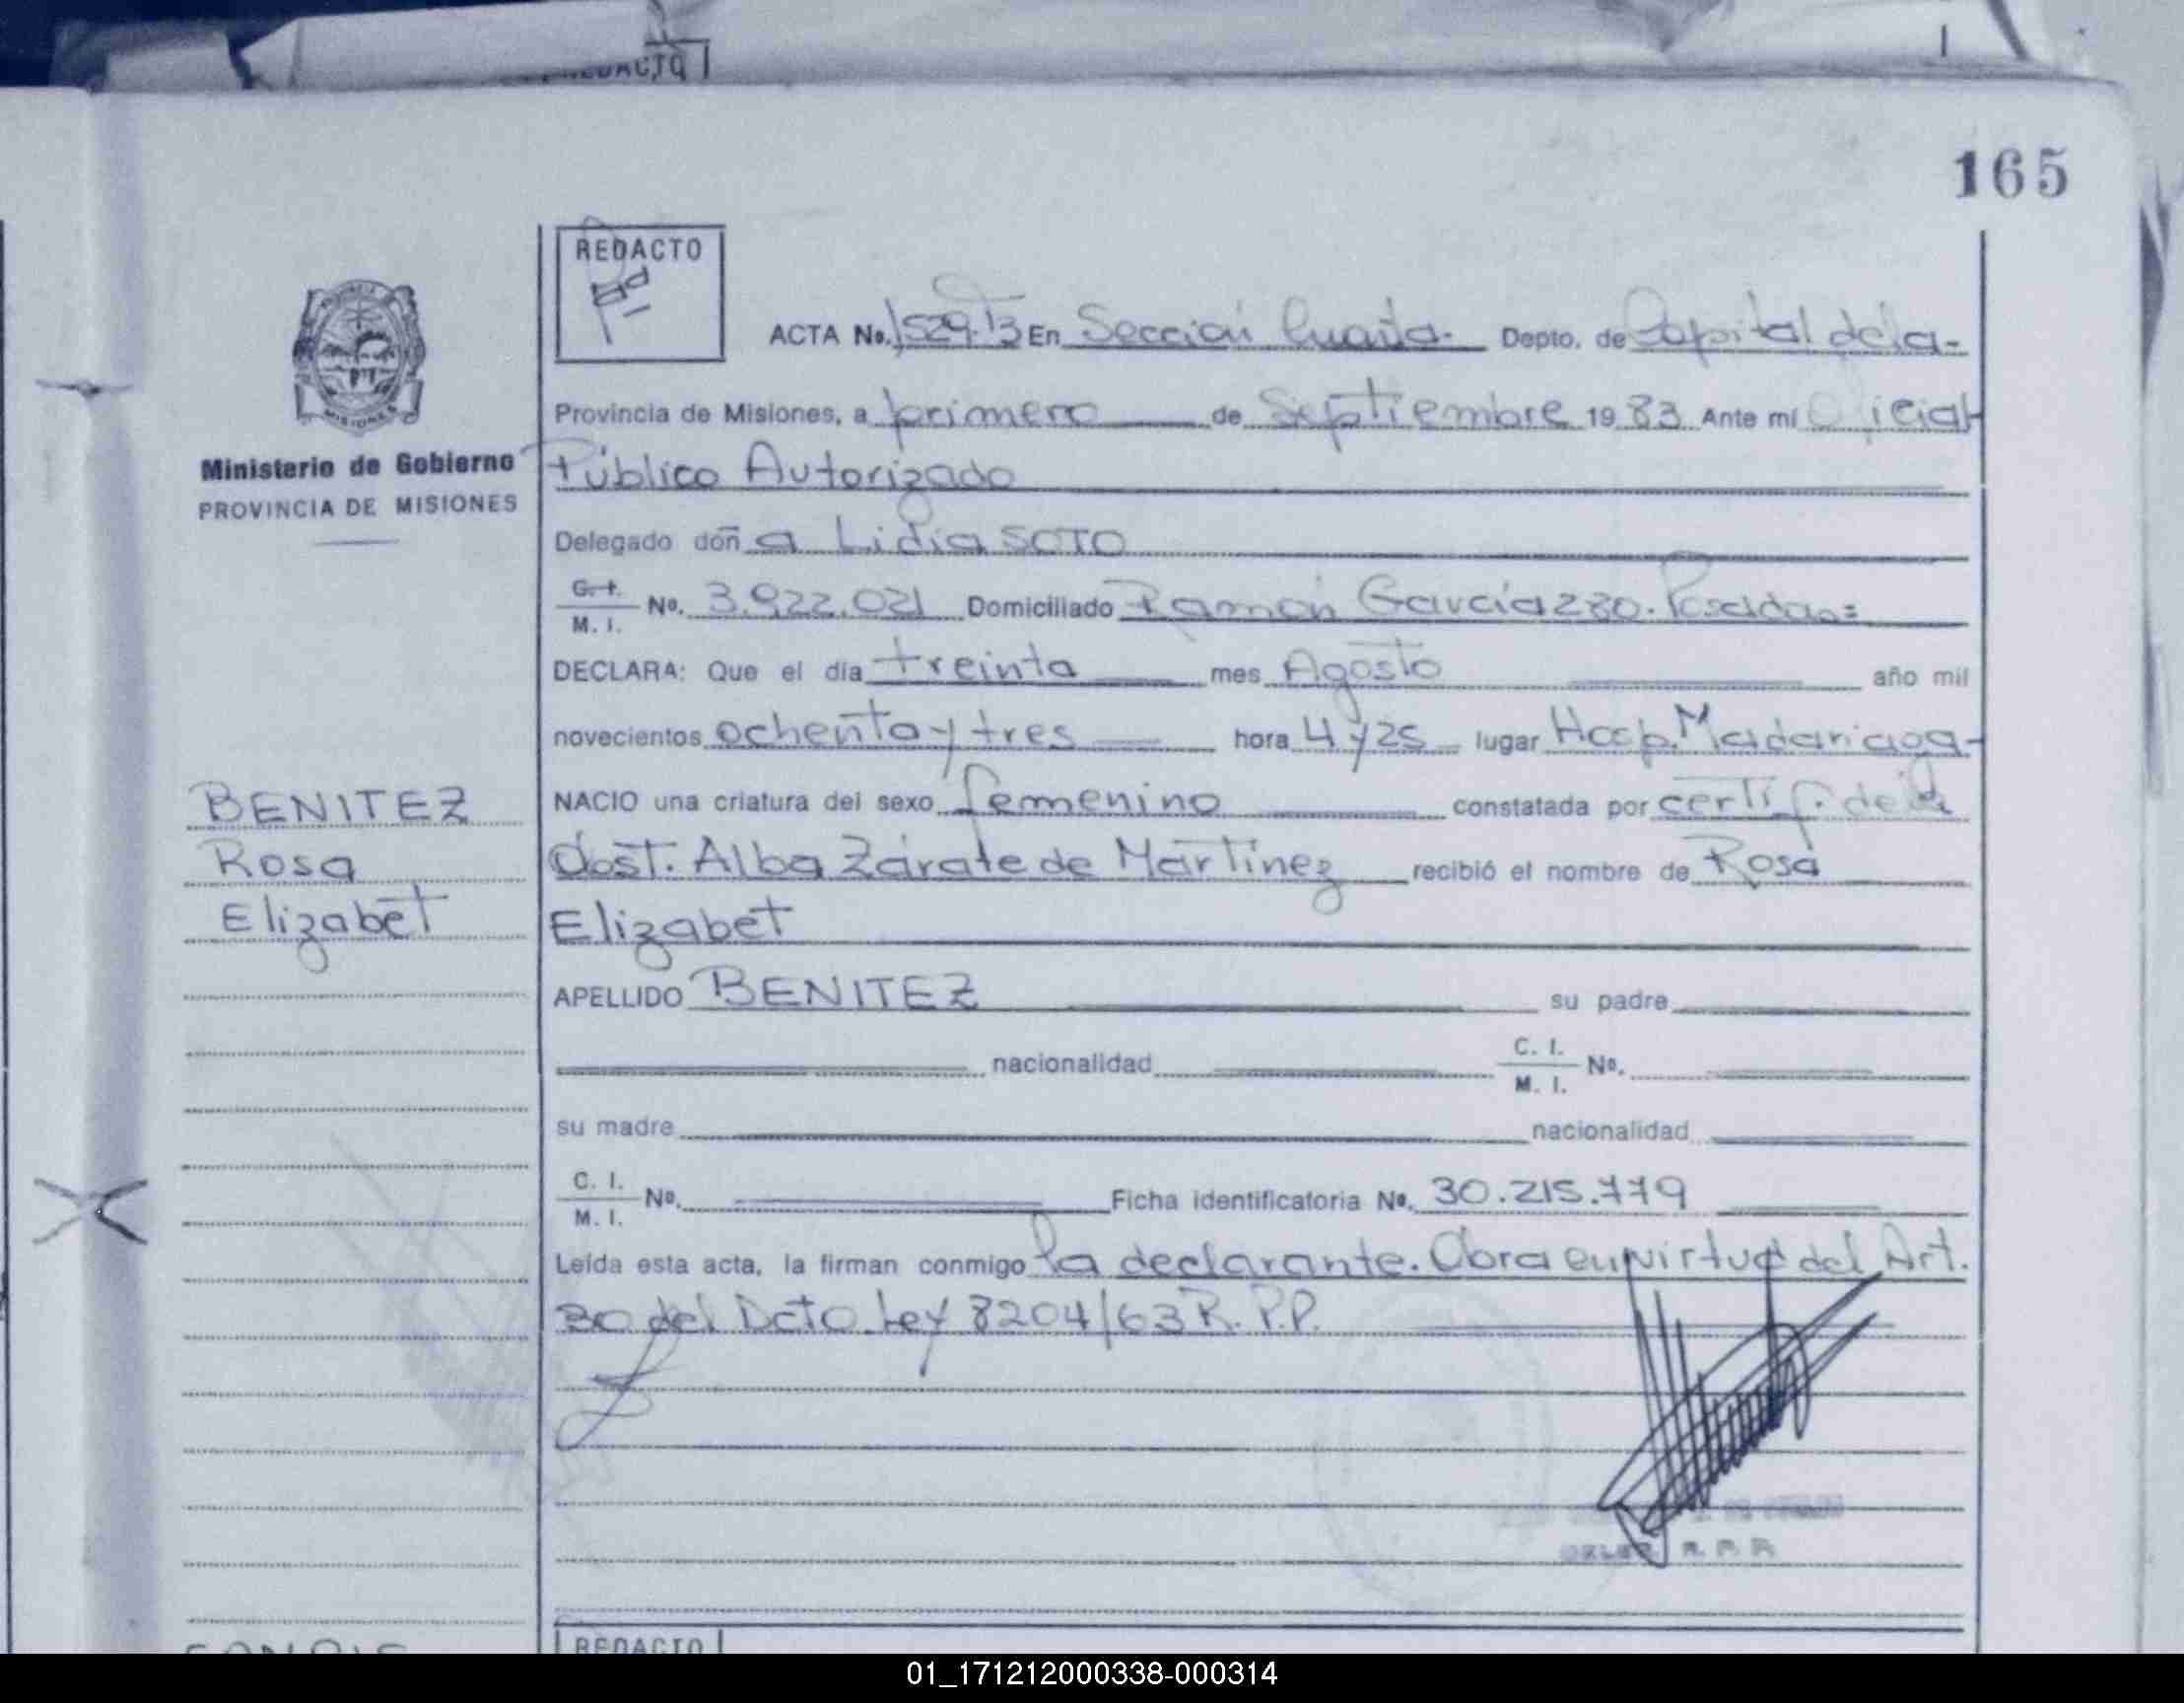 REDACTO
165
REDACTO
ACTA No. 1529.T3 En Sección Cuarta. Depto. de Capital de la-
Provincia de Misiones, a primero de Septiembre 1983 Ante mí Oficial
Ministerio de Gobierno
Público Autorizado
PROVINCIA DE MISIONES
Delegado doña Lidia SOTO
C. I. / M. I. No. 3.922.021 Domiciliado Ramón García 280. Posadas=
DECLARA: Que el día treinta mes Agosto año mil
novecientos ochenta y tres hora 4 y 25 lugar Hosp. Madariaga-
BENITEZ
NACIO una criatura del sexo femenino constatada por certif. de la
Rosa
Obst. Alba Zárate de Martínez recibió el nombre de Rosa
Elizabet
Elizabet
APELLIDO BENITEZ su padre
nacionalidad C. I. / M. I. No.
su madre nacionalidad
C. I. / M. I. No. Ficha identificatoria No. 30.215.779
Leída esta acta, la firman conmigo la declarante. Obra en virtud del Art.
30 del Dcto. Ley 8204/63 R.P.P.
REDACTO
01_171212000338-000314